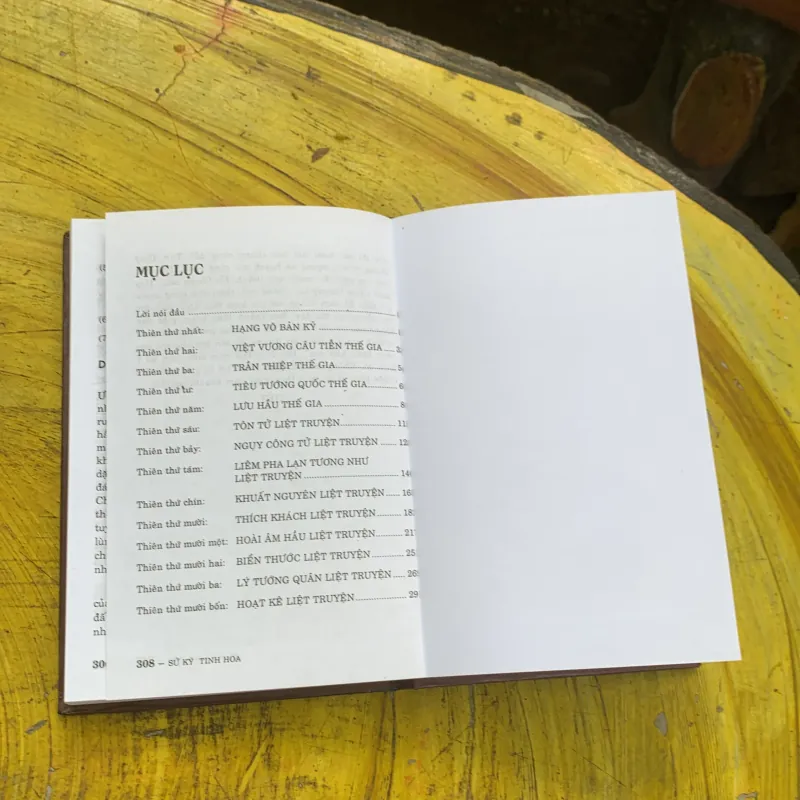 MỤC LỤC
Lời nói đầu
Thiên thứ nhất: HẠNG VÕ BẢN KỶ
Thiên thứ hai: VIỆT VƯƠNG CÂU TIỄN THẾ GIA
Thiên thứ ba: TRẦN THIỆP THẾ GIA
Thiên thứ tư: TIÊU TƯỚNG QUỐC THẾ GIA
Thiên thứ năm: LƯU HẦU THẾ GIA
Thiên thứ sáu: TÔN TỬ LIỆT TRUYỆN
Thiên thứ bảy: NGỤY CÔNG TỬ LIỆT TRUYỆN
Thiên thứ tám: LIÊM PHA LẠN TƯƠNG NHƯ
LIỆT TRUYỆN
Thiên thứ chín: KHUẤT NGUYÊN LIỆT TRUYỆN
Thiên thứ mười: THÍCH KHÁCH LIỆT TRUYỆN
Thiên thứ mười một: HOÀI ÂM HẦU LIỆT TRUYỆN
Thiên thứ mười hai: BIỂN THƯỚC LIỆT TRUYỆN
Thiên thứ mười ba: LÝ TƯỚNG QUÂN LIỆT TRUYỆN
Thiên thứ mười bốn: HOẠT KÊ LIỆT TRUYỆN
308 – SỬ KÝ TINH HOA